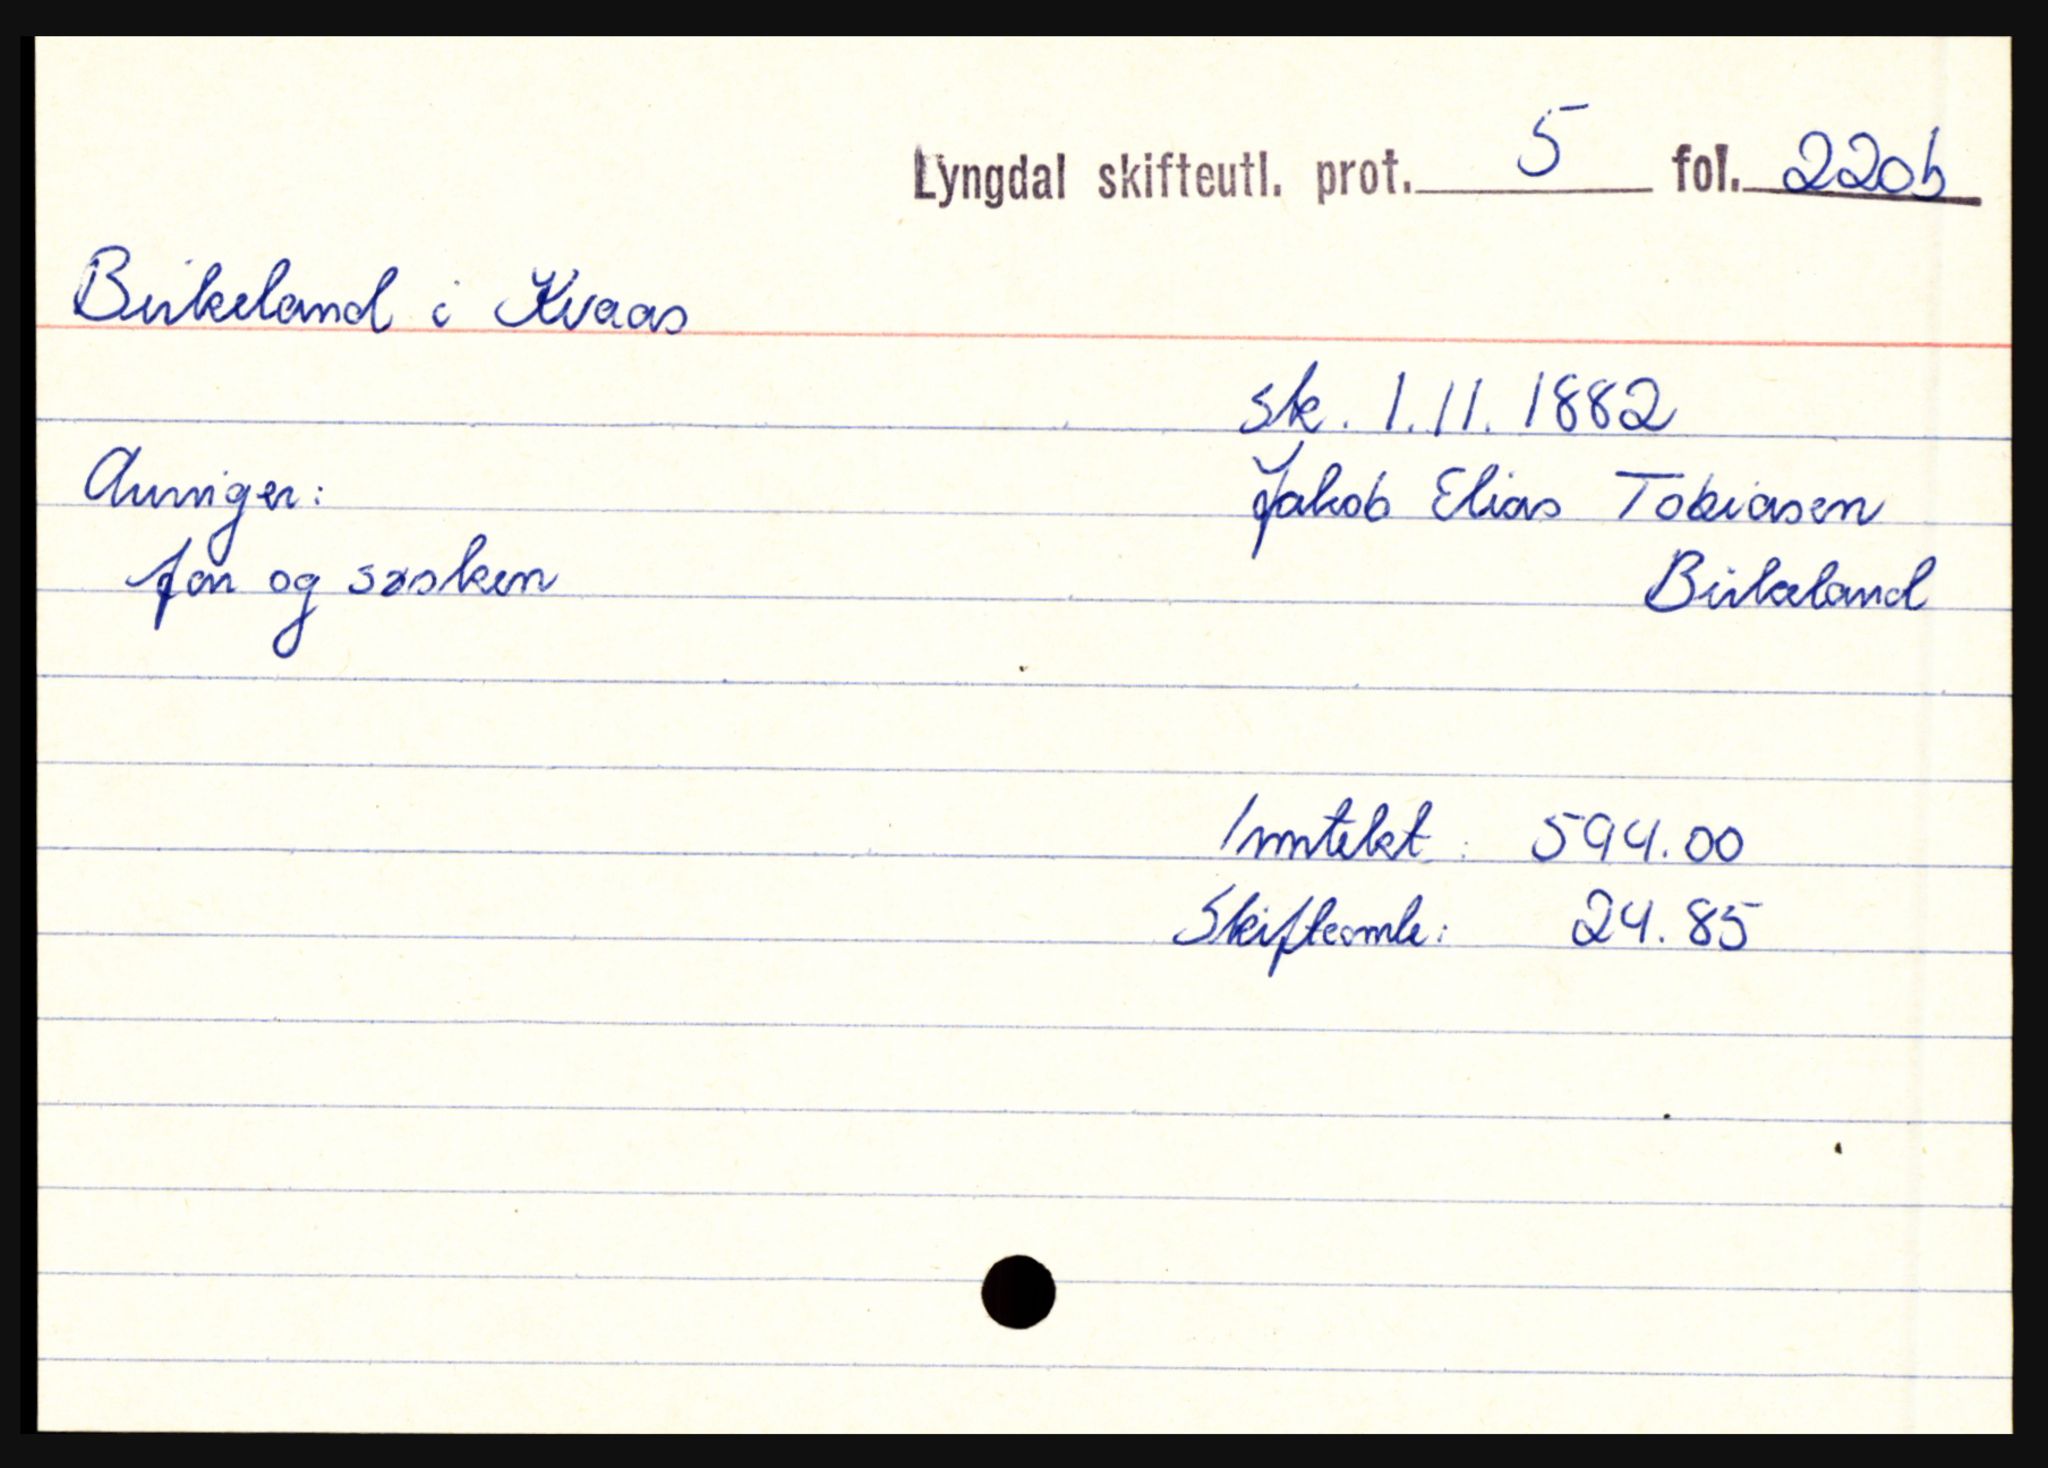 Lyngdal skifteutl. prot. 5 fol. 220b
Birkeland i Kvaas
sk. 1.11.1882
Arvinger: Jakob Elias Tobiasen
far og søsken Birkeland
Inntekt: 594.00
Skifteomk: 24.85